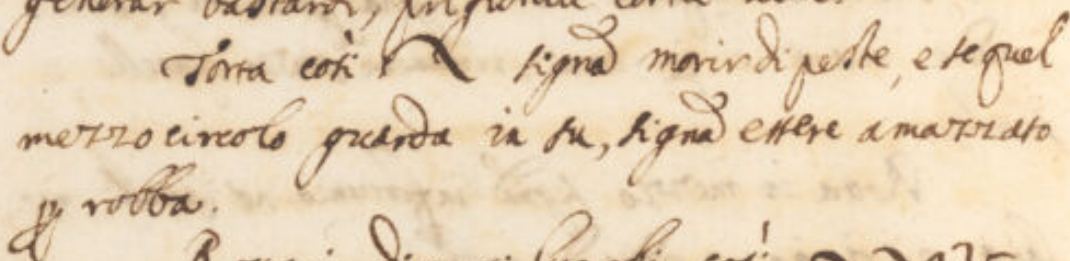 generar bastardi, prigionia
Torta così signã morir di peste, e se quel
mezzo circolo guarda in su, signã essere amazzato
p robba.
così